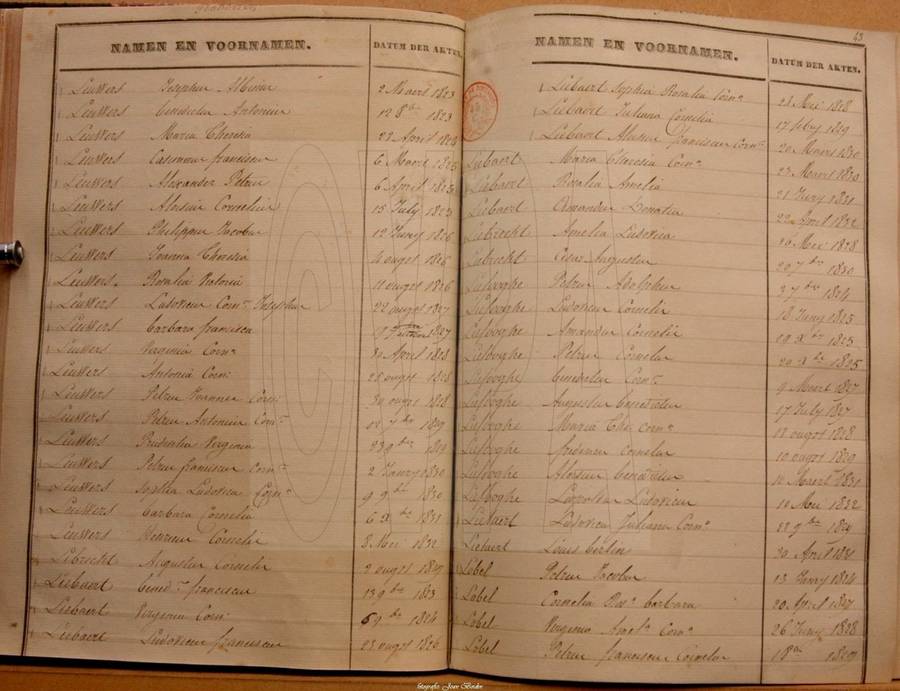 NAMEN EN VOORNAMEN. DATUM DER AKTEN.
Leuwers Josephus Albinus 2 Maart 1823
Leuwers Benedictus Antonius 12 8br 1823
Leuwers Maria Theresia 22 April 1824
Leuwers Casimirus franciscus 6 Maart 1825
Leuwers Alexander Petrus 6 April 1825
Leuwers Aloisius Cornelius 15 July 1825
Leuwers Philippus Jacobus 12 Juny 1826
Leuwers Joanna Theresia 4 ougst 1826
Leuwers Rosalia Victoria 11 ougst 1826
Leuwers Ludovicus Corn. Josephus 22 ougst 1827
Leuwers barbara francisca 1827
Leuwers Virginia Corn. 30 April 1828
Leuwers Antonia Corn. 25 ougst 1828
Leuwers Petrus Joannes Corn. 30 ougst 1828
Leuwers Petrus Antonius Corn. 7br 1829
Leuwers Virginia 23 9br 1829
Leuwers Petrus franciscus Corn. 2 January 1830
Leuwers Sophia Ludovica Corn. 9 9br 1830
Leuwers barbara Cornelia 6 Xbr 1831
Leuwers Henricus Cornelis 8 Mei 1832
Librecht Augustus Cornelis 2 ougst 1829
Liebaert bened. franciscus 13 9br 1823
Liebaert Virginia Corn. 6 9br 1824
Liebaert Ludovicus franciscus 23 ougst 1826
43
NAMEN EN VOORNAMEN. DATUM DER AKTEN.
Liebaert Sophia Rosalia Corn. 23 Mei 1828
Liebaert Juliana Cornelia 17 1829
Liebaert franciscus Corn. 20 Maart 1830
Liebaert Maria Theresia Corn. 27 Maart 1830
Liebaert Rosalia Amelia 21 Juny 1831
Liebaert Amandus Donatus 22 April 1832
Liebrecht Amelia Ludovica 26 Mei 1828
Librecht Cesar Augustus 20 7br 1830
Liefooghe Petrus Adolphus 27 br 1824
Liefooghe Ludovicus Cornelis 18 Juny 1825
Liefooghe Amandus Cornelis 19 Xbr 1825
Liefooghe Petrus Cornelis 20 Xbr 1825
Liefooghe benedictus Corn. 9 Maart 1827
Liefooghe Augustus benedictus 17 July 1827
Liefooghe Maria The. Corn. ougst 1828
Liefooghe Cornelis 10 ougst 1829
Liefooghe Aloisius benedictus Maart 1831
Liefooghe Leopoldus Ludovicus 10 Mei 1832
Lietaert Ludovica Juliana Corn. 22 9br 1829
Lietaert Louis bertin 30 April 1831
Lobel Petrus Jacobus 13 Juny 1824
Lobel Cornelia Ros. barbara 20 April 1827
Lobel Virginia Amel. Corn. 26 Juny 1828
Lobel Petrus franciscus Cornelis 1 8br